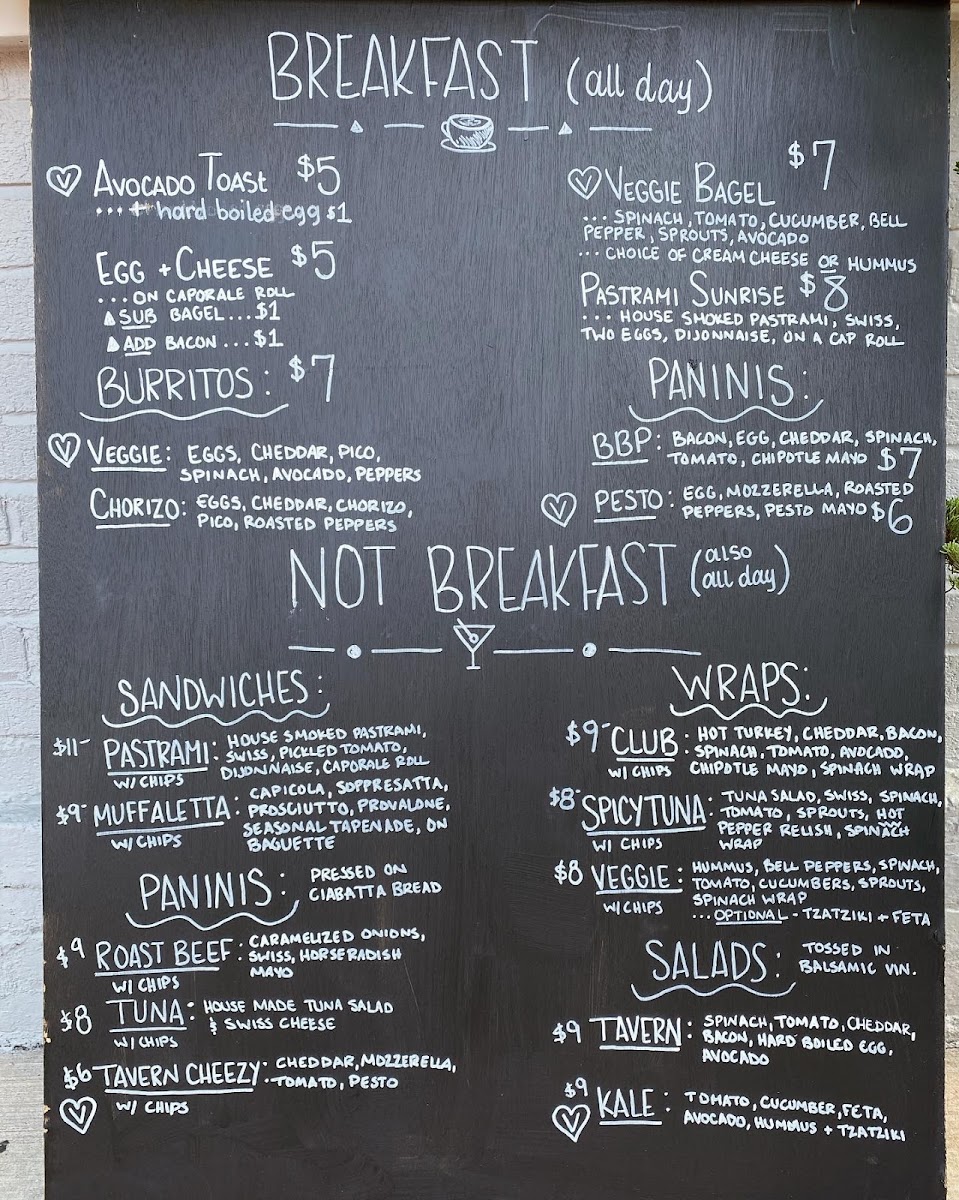 BREAKFAST (all day)
AVOCADO TOAST $5
... + hard boiled egg $1
EGG + CHEESE $5
... ON CAPORALE ROLL
SUB BAGEL... $1
ADD BACON ... $1
BURRITOS: $7
V VEGGIE: EGGS, CHEDDAR, PICO,
SPINACH, AVOCADO, PEPPERS
CHORIZO: EGGS, CHEDDAR, CHORIZO,
PICO, ROASTED PEPPERS
V VEGGIE BAGEL $7
... SPINACH, TOMATO, CUCUMBER, BELL
PEPPER, SPROUTS, AVOCADO
... CHOICE OF CREAM CHEESE OR HUMMUS
PASTRAMI SUNRISE $8
... HOUSE SMOKED PASTRAMI, SWISS,
TWO EGGS, DIJONNAISE, ON A CAP ROLL
PANINIS:
BBP: BACON, EGG, CHEDDAR, SPINACH,
TOMATO, CHIPOTLE MAYO $7
V PESTO: EGG, MOZZERELLA, ROASTED
PEPPERS, PESTO MAYO $6
NOT BREAKFAST (also
all day)
SANDWICHES:
$11- PASTRAMI: HOUSE SMOKED PASTRAMI,
SWISS, PICKLED TOMATO,
W/ CHIPS DIJONNAISE, CAPORALE ROLL
$9- MUFFALETTA: CAPICOLA, SOPPRESATTA,
PROSCIUTTO, PROVALONE,
W/ CHIPS SEASONAL TAPENADE, ON
BAGUETTE
PANINIS: PRESSED ON
CIABATTA BREAD
$9 ROAST BEEF: CARAMELIZED ONIONS,
SWISS, HORSERADISH
W/ CHIPS MAYO
$8 TUNA: HOUSE MADE TUNA SALAD
W/ CHIPS & SWISS CHEESE
$6 TAVERN CHEEZY: CHEDDAR, MOZZERELLA,
TOMATO, PESTO
V W/ CHIPS
WRAPS:
$9- CLUB: HOT TURKEY, CHEDDAR, BACON,
SPINACH, TOMATO, AVOCADO,
W/ CHIPS CHIPOTLE MAYO, SPINACH WRAP
$8- SPICY TUNA: TUNA SALAD, SWISS, SPINACH,
TOMATO, SPROUTS, HOT
W/ CHIPS PEPPER RELISH, SPINACH
WRAP
$8 VEGGIE: HUMMUS, BELL PEPPERS, SPINACH,
TOMATO, CUCUMBERS, SPROUTS,
W/ CHIPS SPINACH WRAP
... OPTIONAL - TZATZIKI + FETA
SALADS: TOSSED IN
BALSAMIC VIN.
$9 TAVERN: SPINACH, TOMATO, CHEDDAR,
BACON, HARD BOILED EGG,
AVOCADO
$9 V KALE: TOMATO, CUCUMBER, FETA,
AVOCADO, HUMMUS + TZATZIKI